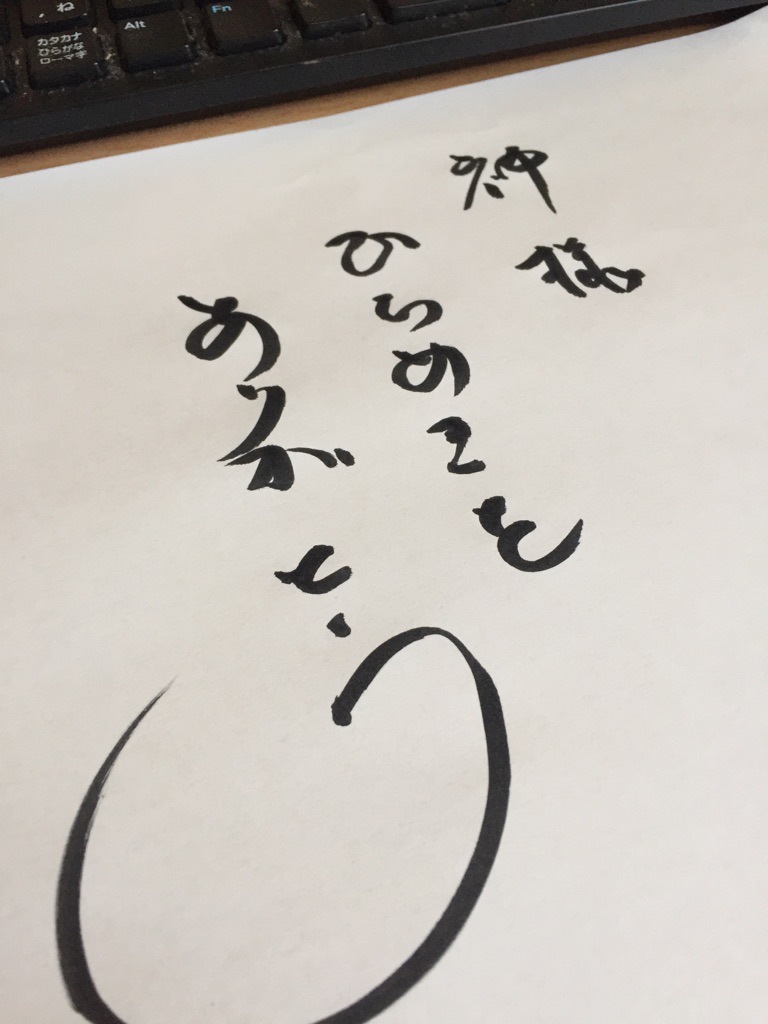 神様
ひらめきを
ありがとう
, ね
カタカナ
ひらがな
ローマ字
Alt
Fn